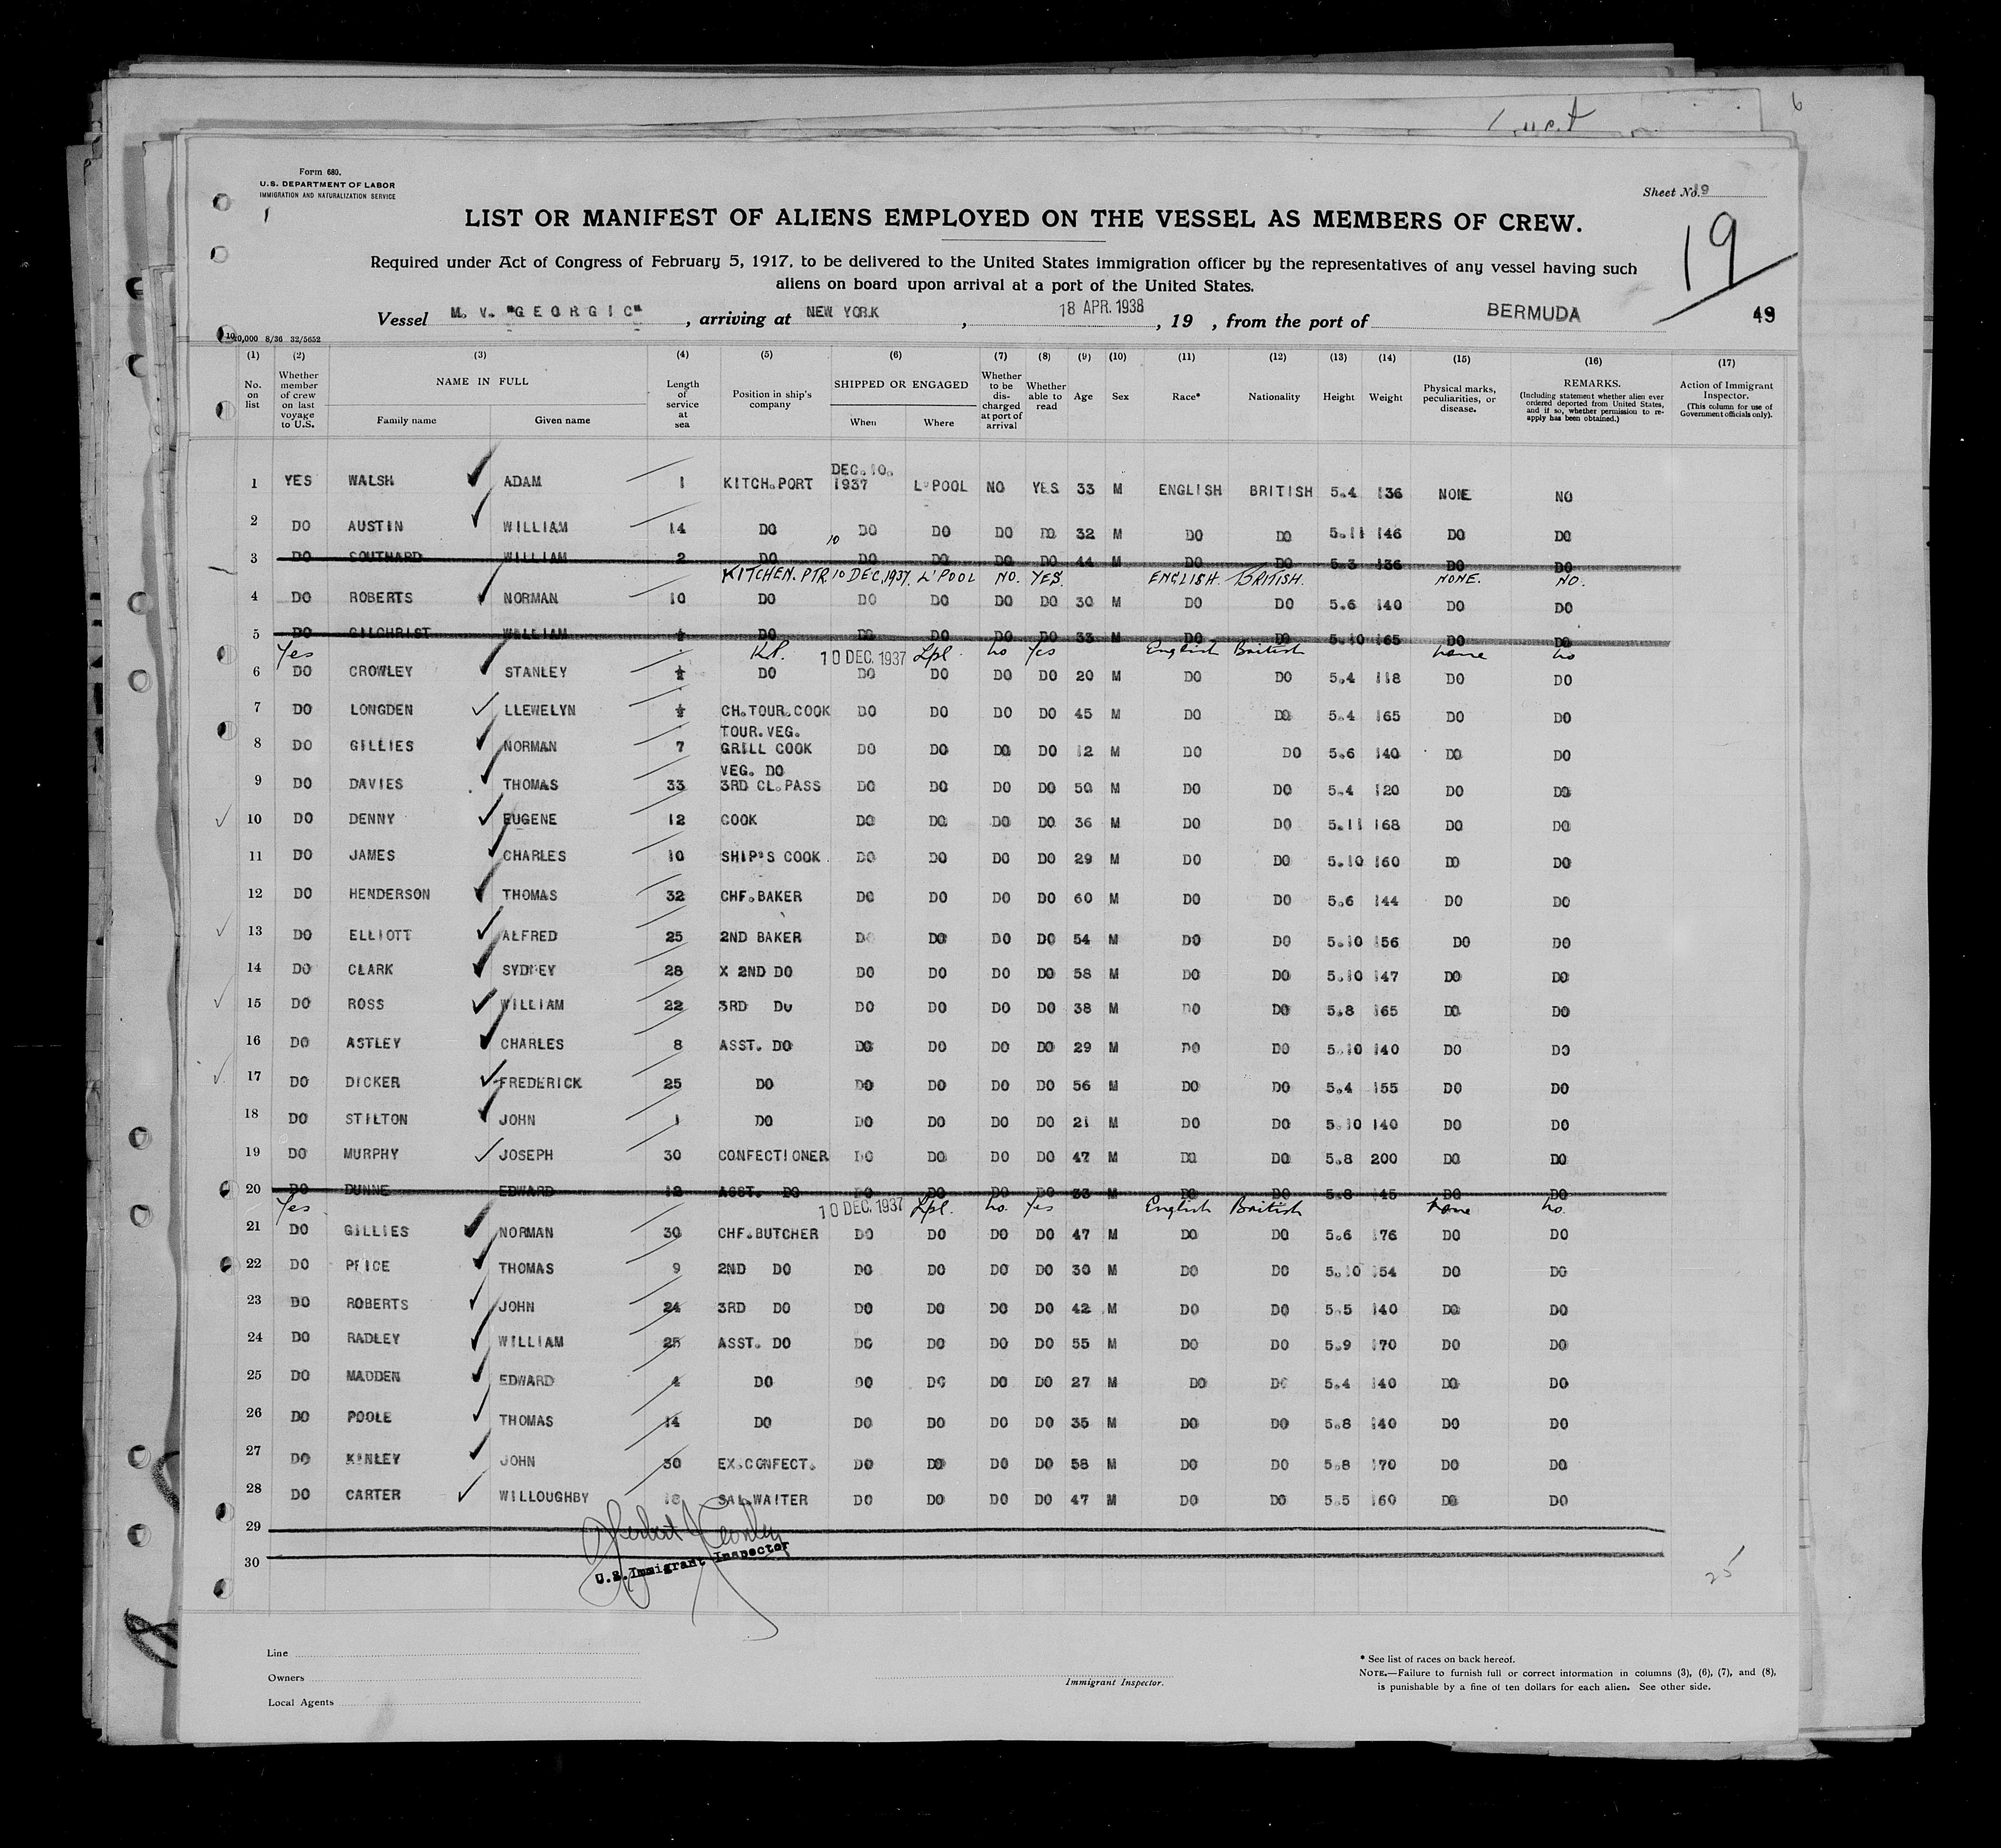 Form 680.
U.S. DEPARTMENT OF LABOR
IMMIGRATION AND NATURALIZATION SERVICE
Sheet No. 19
LIST OR MANIFEST OF ALIENS EMPLOYED ON THE VESSEL AS MEMBERS OF CREW.
19
Required under Act of Congress of February 5, 1917, to be delivered to the United States immigration officer by the representatives of any vessel having such
aliens on board upon arrival at a port of the United States.
Vessel M. V. "GEORGIC", arriving at NEW YORK, 18 APR. 1938, 19 , from the port of BERMUDA 49
8/36 32/5652
(1) (2) (3) (4) (5) (6) (7) (8) (9) (10) (11) (12) (13) (14) (15) (16) (17)
No. on list Whether member of crew on last voyage to U.S. NAME IN FULL Family name Given name Length of service at sea Position in ship's company SHIPPED OR ENGAGED When Where Whether to be discharged at port of arrival Whether able to read Age Sex Race* Nationality Height Weight Physical marks, peculiarities, or disease. REMARKS. (Including statement whether alien ever ordered deported from United States, and if so, whether permission to reapply has been obtained.) Action of Immigrant Inspector. (This column for use of Government officials only).
1 YES WALSH ADAM 1 KITCH.PORT DEC.10. 1937 L'POOL NO YES 33 M ENGLISH BRITISH 5.4 136 NONE NO
2 DO AUSTIN WILLIAM 14 DO DO DO DO DO 32 M DO DO 5.11 146 DO DO
3 DO SOUTHARD WILLIAM 2 DO DO DO DO DO 44 M DO DO 5.3 136 DO DO
KITCHEN. PTR 10 DEC, 1937. L'POOL NO. YES. ENGLISH. BRITISH. NONE. NO.
4 DO ROBERTS NORMAN 10 DO DO DO DO DO 30 M DO DO 5.6 140 DO DO
5 DO GILCHRIST WILLIAM ½ DO DO DO DO DO 33 M DO DO 5.10 165 DO DO
Yes K.P. 10 DEC. 1937 Lpl. no Yes English British none no
6 DO CROWLEY STANLEY ½ DO DO DO DO DO 20 M DO DO 5.4 118 DO DO
7 DO LONGDEN LLEWELYN ½ CH.TOUR.COOK DO DO DO DO 45 M DO DO 5.4 165 DO DO
8 DO GILLIES NORMAN 7 TOUR.VEG. GRILL COOK DO DO DO DO 12 M DO DO 5.6 140 DO DO
9 DO DAVIES THOMAS 33 VEG. DO 3RD CL.PASS DO DO DO DO 50 M DO DO 5.4 120 DO DO
10 DO DENNY EUGENE 12 COOK DO DO DO DO 36 M DO DO 5.11 168 DO DO
11 DO JAMES CHARLES 10 SHIP'S COOK. DO DO DO DO 29 M DO DO 5.10 160 DO DO
12 DO HENDERSON THOMAS 32 CHF.BAKER DO DO DO DO 60 M DO DO 5.6 144 DO DO
13 DO ELLIOTT ALFRED 25 2ND BAKER DO DO DO DO 54 M DO DO 5.10 156 DO DO
14 DO CLARK SYDNEY 28 X 2ND DO DO DO DO DO 58 M DO DO 5.10 147 DO DO
15 DO ROSS WILLIAM 22 3RD DO DO DO DO DO 38 M DO DO 5.8 165 DO DO
16 DO ASTLEY CHARLES 8 ASST. DO DO DO DO DO 29 M DO DO 5.10 140 DO DO
17 DO DICKER FREDERICK 25 DO DO DO DO DO 56 M DO DO 5.4 155 DO DO
18 DO STILTON JOHN 1 DO DO DO DO DO 21 M DO DO 5.10 140 DO DO
19 DO MURPHY JOSEPH 30 CONFECTIONER DO DO DO DO 47 M DO DO 5.8 200 DO DO
20 DO DUNNE EDWARD 12 ASST. DO DO DO DO DO 33 M DO DO 5.8 145 DO DO
Yes 10 DEC. 1937 Lpl. no. Yes English British none no.
21 DO GILLIES NORMAN 30 CHF.BUTCHER DO DO DO DO 47 M DO DO 5.6 176 DO DO
22 DO PRICE THOMAS 9 2ND DO DO DO DO DO 30 M DO DO 5.10 154 DO DO
23 DO ROBERTS JOHN 24 3RD DO DO DO DO DO 42 M DO DO 5.5 140 DO DO
24 DO RADLEY WILLIAM 25 ASST. DO DO DO DO DO 55 M DO DO 5.9 170 DO DO
25 DO MADDEN EDWARD 4 DO DO DO DO DO 27 M DO DO 5.4 140 DO DO
26 DO POOLE THOMAS 14 DO DO DO DO DO 35 M DO DO 5.8 140 DO DO
27 DO KINLEY JOHN 30 EX.CONFECT. DO DO DO DO 58 M DO DO 5.8 170 DO DO
28 DO CARTER WILLOUGHBY 18 SAL.WAITER DO DO DO DO 47 M DO DO 5.5 160 DO DO
29
30
U.S. Immigrant Inspector
25
Line
Owners
Local Agents
Immigrant Inspector.
* See list of races on back hereof.
NOTE.—Failure to furnish full or correct information in columns (3), (6), (7), and (8),
is punishable by a fine of ten dollars for each alien. See other side.